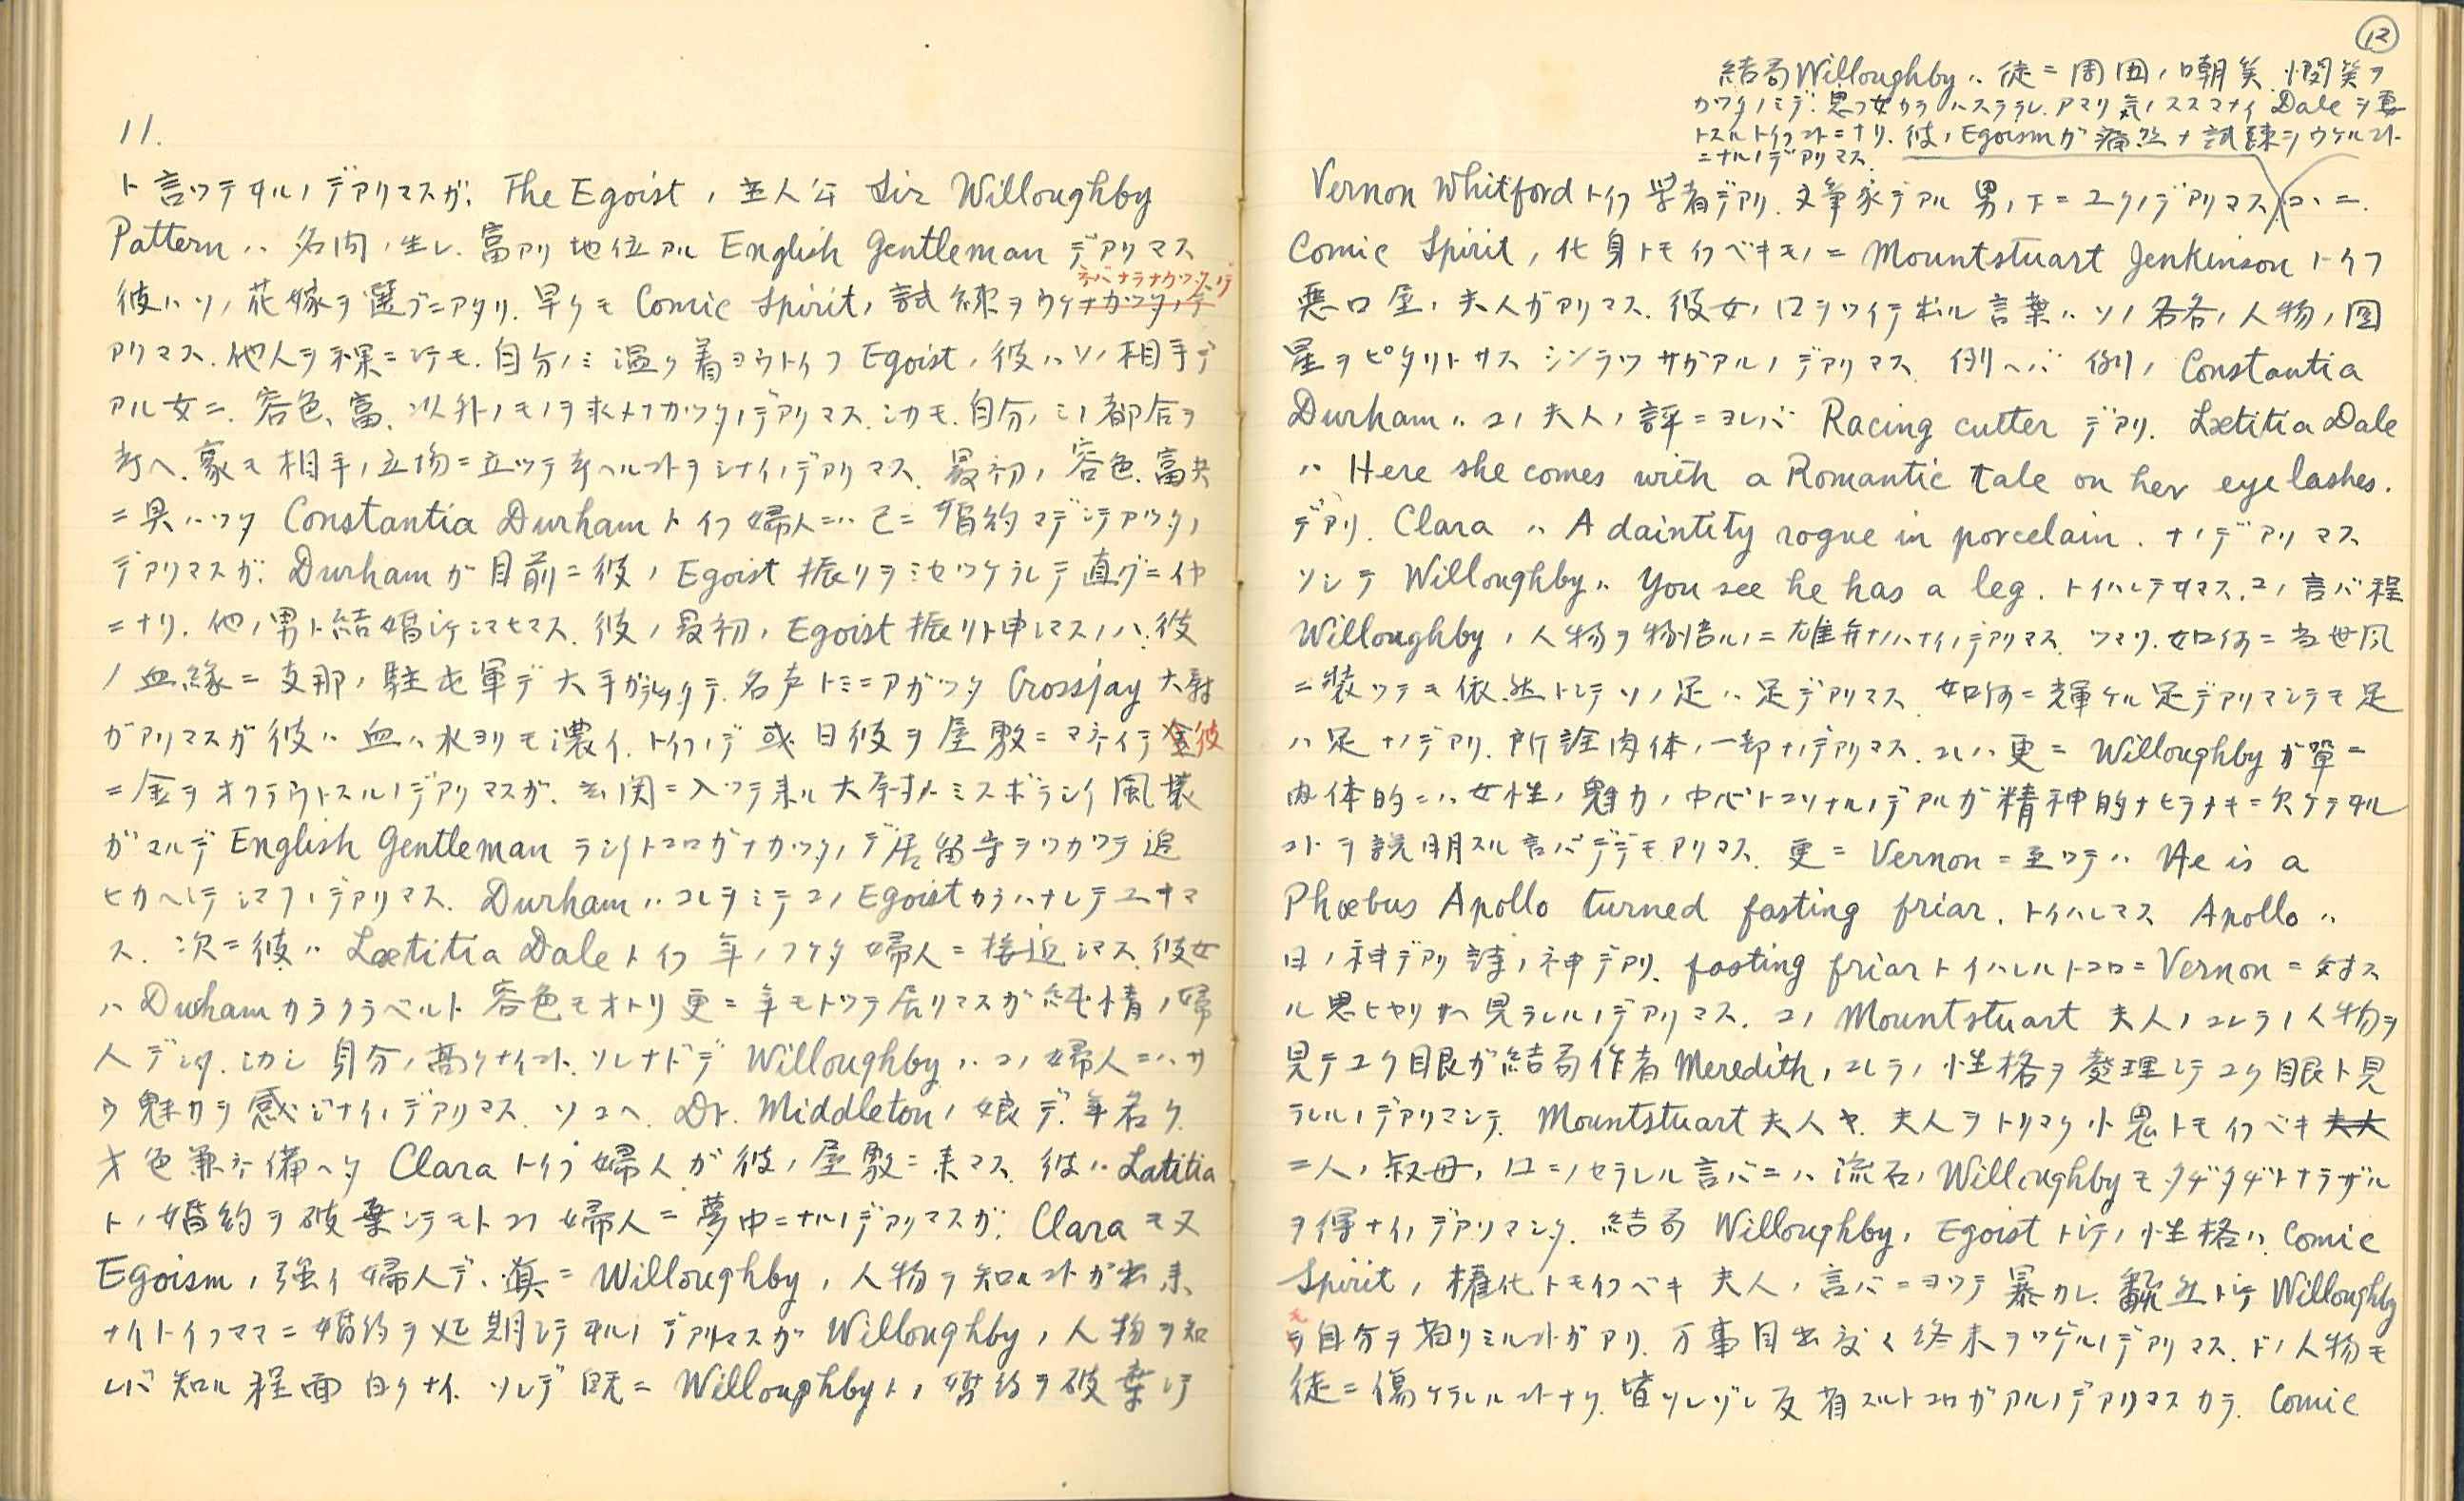 11.
ト言ッテヰルノデアリマスガ、The Egoist ノ主人公 Sir Willoughby
Pattern ハ名門ノ生レ、富アリ地位アル English Gentleman デアリマス
ネバナラナカッタノデ
彼ハソノ花嫁ヲ選ブニアタリ、早クモ Comic Spirit ノ試練ヲウケナカッタノデ
アリマス、他人ヲ裸ニシテモ、自分ノミ温ク着ヨウトイフ Egoist ノ彼ハソノ相手デ
アル女ニ、容色、富、以外ノモノヲ求メナカッタノデアリマス、シカモ、自分ノミノ都合ヲ
考ヘ、毫モ相手ノ立場ニ立ッテ考ヘルコトヲシナイノデアリマス、最初ノ容色、富共
ニ具ハッタ Constantia Durham トイフ婦人ニハ已ニ婚約マデシテアッタノ
デアリマスガ、Durham ガ目前ニ彼ノ Egoist 振リヲミセツケラレテ直グニ
ニナリ、他ノ男ト結婚シテシマヒマス、彼ノ最初ノ Egoist 振リト申シマスノハ、彼
ノ血縁ニ支那ノ駐屯軍デ大手ガラヲタテ、名声トミニアガッタ Crossjay 大尉
ガアリマスガ彼ハ血ハ水ヨリモ濃イ、トイフノデ或日彼ヲ屋敷ニマネイテ金彼
ニ金ヲオクラウトスルノデアリマスガ、玄関ニ入ッテ来ル大尉ノミスボラシイ風裳
ガマルデ English Gentleman ラシイトコロガナカッタノデ居留守ヲツカッテ追
ヒカヘシテシマフノデアリマス、Durham ハコレヲミテコノ Egoist カラハナレテユキマ
ス、次ニ彼ハ Lætitia Dale トイフ年ノフケタ婦人ニ接近シマス、彼女
ハ Durham カラクラベルト容色モオトリ更ニ年モトッテ居リマスガ純情ノ婦
人デシタ、シカシ身分ノ高クナイコト、ソレナドデ Willoughby ハコノ婦人ニハサ
ウ魅力ヲ感ジナイノデアリマス、ソコヘ Dr. Middleton ノ娘デ、年若ク
才色兼ネ備ヘタ Clara トイフ婦人ガ彼ノ屋敷ニ来マス、彼ハ Latitia
トノ婚約ヲ破棄シテモトコノ婦人ニ夢中ニナルノデアリマスガ、Clara モ又
Egoism ノ強イ婦人デ、真ニ Willoughby ノ人物ヲ知ルコトガ出来
ナイトイフママニ婚約ヲ延期シテヰルノデアリマスガ Willoughby ノ人物ヲ知
レバ知ル程面白クナイ、ソレデ既ニ Willoughby トノ婚約ヲ破棄シテ
12
結局 Willoughby ハ徒ニ周囲ノ嘲笑、憫笑ヲ
カッタノミデ、思フ女カラハステラレ、アマリ気ノススマナイ Dale ヲ妻
トスルトイフコトニナリ、彼ノ Egoism ガ痛烈ナ試錬ヲウケルコト
ニナルノデアリマス
Vernon Whitford トイフ学者デアリ、文筆家デアル男ノ下ニユクノデアリマス、コハニ
Comic Spirit ノ化身トモイフベキモノニ Mountstuart Jenkinson トイフ
悪口屋ノ夫人ガアリマス、彼女ノ口ヲツイテ出ル言葉ハソノ各各ノ人物ノ図
星ヲピタリトサスシンラツサガアルノデアリマス、例ヘバ例ノ Constantia
Durham ハコノ夫人ノ評ニヨレバ Racing cutter デアリ、Lætitia Dale
ハ Here she comes with a Romantic tale on her eye lashes.
デアリ、Clara ハ A daintity rogue in porcelain. ナノデアリマス
ソシテ Willoughby ハ You see he has a leg. トイハレテヰマス、コノ言バ程
Willoughby ノ人物ヲ物語ルノニ雄弁ナノハナイノデアリマス、ツマリ、如何ニ当世風
ニ装ッテモ依然トシテソノ足ハ足デアリマス、如何ニ輝ケル足デアリマシテモ足
ハ足ナノデアリ、所詮肉体ノ一部ナノデアリマス、コレハ更ニ Willoughby ガ単ニ
肉体的ニハ女性ノ魅力ノ中心トコソナルノデアルガ精神的ナヒラメキニ欠ケテヰル
コトヲ説明スル言バデモアリマス、更ニ Vernon ニ至ッテハ He is a
Phœbus Apollo turned fasting friar. トイハレマス Apollo ハ
日ノ神デアリ詩ノ神デアリ、fasting friar トイハレルトコロニ Vernon ニ対ス
ル思ヒヤリサヘ見ラレルノデアリマス、コノ Mountstuart 夫人ノコレラノ人物ヲ
見テユク眼ガ結局作者 Meredith ノコレラノ性格ヲ整理シテユク眼ト見
ラレルノデアリマシテ、Mountstuart 夫人ヤ、夫人ヲトリマク小悪トモイフベキ
二人ノ叔母ノ口ニノセラレル言バニハ流石ノ Willoughby モタヂタヂトナラザル
ヲ得ナイノデアリマシタ、結局 Willoughby ノ Egoist トシテノ性格ハ Comic
Spirit ノ権化トモイフベキ夫人ノ言バニヨッテ暴カレ、翻然トシテ Willoughby
モ自分ヲ省リミルコトガアリ、万事目出度ク終末ヲツゲルノデアリマス、ドノ人物モ
徒ニ傷ケラレルコトナク、皆ソレゾレ反省スルトコロガアルノデアリマスカラ、Comic